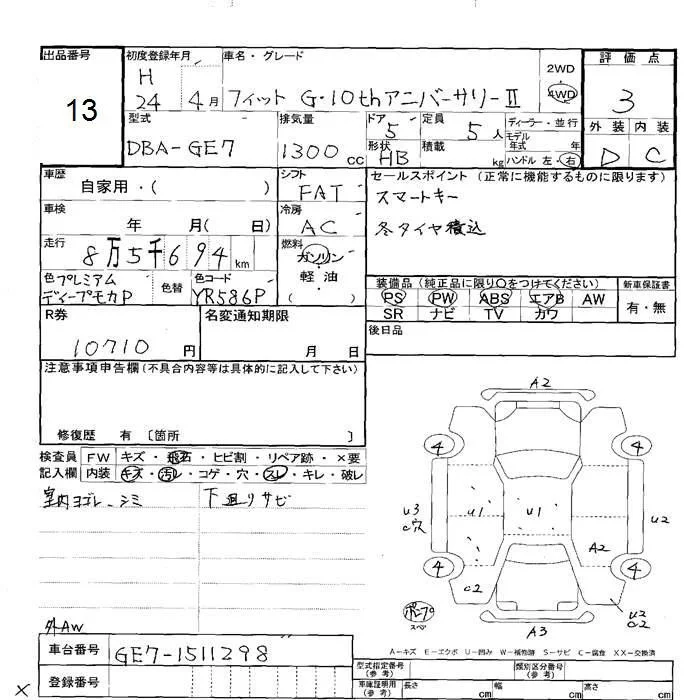 出品番号
13
初度登録年月
H
24 4月
車名・グレード
フィット G・10thアニバーサリーⅡ
2WD
4WD
評価点
3
型式
DBA-GE7
排気量
1300cc
ドア
5
形状
HB
定員
5人
積載
kg
ディーラー・並行
モデル
年式 年
ハンドル 左・右
外装 内装
D C
車歴
自家用・( )
シフト
FAT
セールスポイント (正常に機能するものに限ります)
スマートキー
冬タイヤ積込
車検
年 月( 日)
冷房
AC
走行
8万5千694km
燃料
ガソリン
軽油
・
( )
色 プレミアム
ディープモカP
色替
色コード
YR586P
装備品(純正品に限り○をつけてください)
PS PW ABS エアB AW
SR ナビ TV カワ
新車保証書
有・無
R券
10710円
名変通知期限
月 日
後日品
注意事項申告欄(不具合内容等は具体的に記入して下さい)
修復歴 有 〔箇所 〕
検査員
記入欄
FW キズ・飛石・ヒビ割・リペア跡・×要
内装 キズ・汚レ・コゲ・穴・スレ・キレ・破レ
室内ヨゴレ、シミ
下廻りサビ
外AW
A2
4 4
U3
C穴
U1 U1
U2
A2
4 4
C2
U2
C2
スペ
A3
A-キズ E-エクボ U-凹み W-補修跡 S-サビ C-腐食 XX-交換済
車台番号 GE7-1511298
登録番号
型式指定番号
(参考)
類別区分番号
(参考)
車庫証明用
(参考)
長さ cm 幅 cm 高さ cm
×